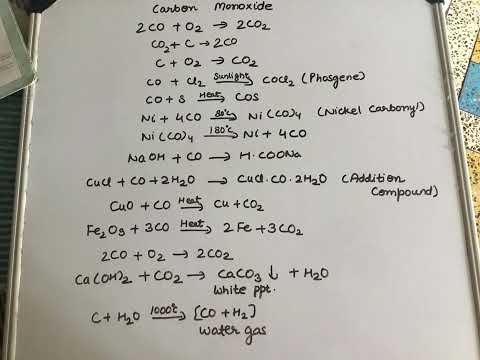 Carbon Monoxide
2CO + O₂ → 2CO₂
CO₂ + C → 2CO
C + O₂ → CO₂
CO + Cl₂ Sunlight→ COCl₂ (Phosgene)
CO + S Heat→ COS
Ni + 4CO 80°C→ Ni(CO)₄ (Nickel Carbonyl)
Ni(CO)₄ 180°C→ Ni + 4CO
NaOH + CO → H·COONa
CuCl + CO + 2H₂O → CuCl·CO·2H₂O (Addition
Compound)
CuO + CO Heat→ Cu + CO₂
Fe₂O₃ + 3CO Heat→ 2Fe + 3CO₂
2CO + O₂ → 2CO₂
Ca(OH)₂ + CO₂ → CaCO₃ ↓ + H₂O
White ppt.
C + H₂O 1000°C→ [CO + H₂]
Water gas